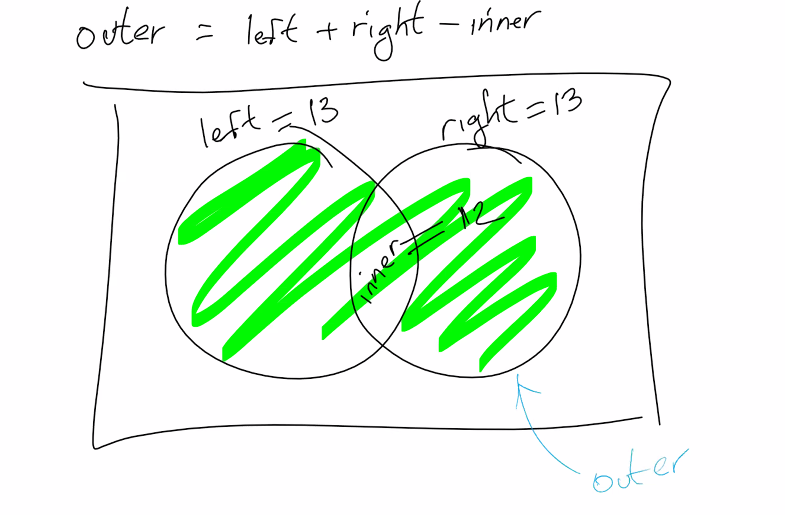 outer = left + right - inner
left = 13
right = 13
inner = 12
outer